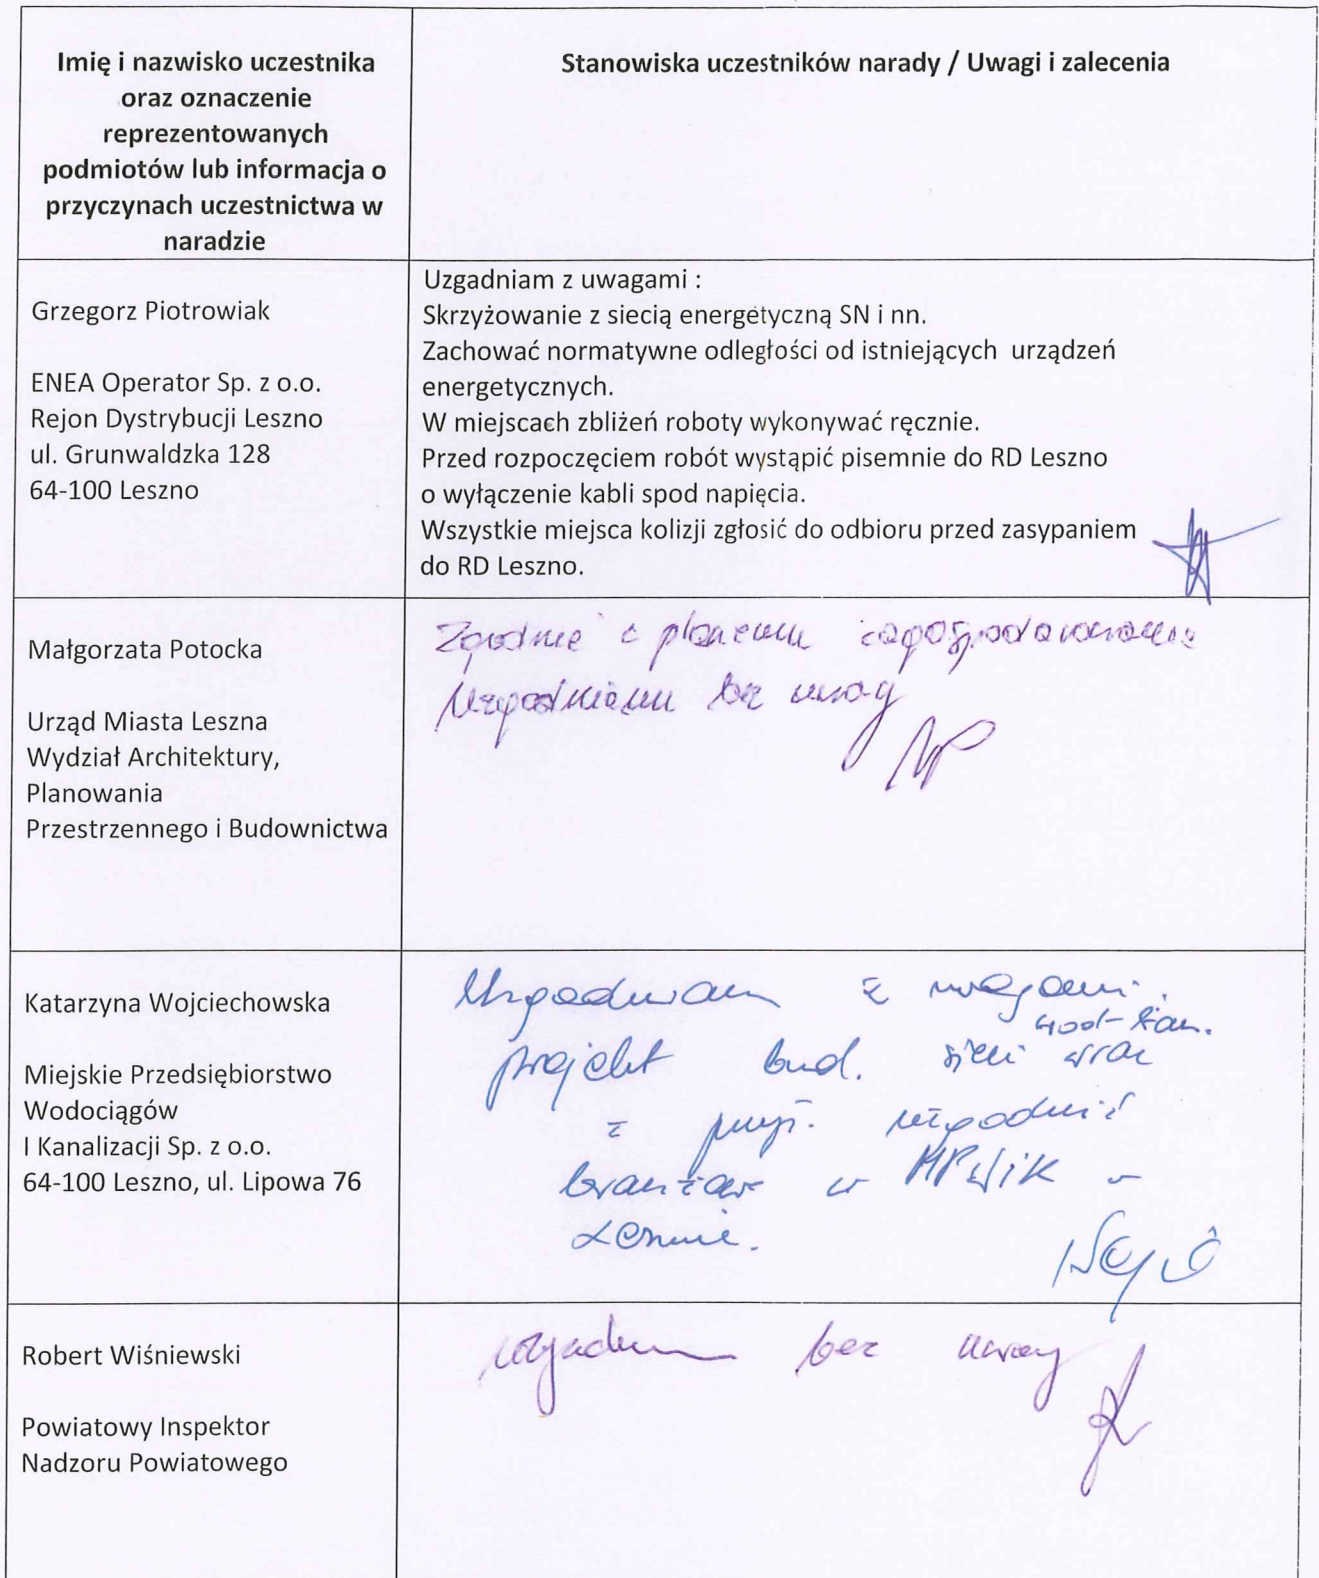 Imię i nazwisko uczestnika
oraz oznaczenie
reprezentowanych
podmiotów lub informacja o
przyczynach uczestnictwa w
naradzie
Stanowiska uczestników narady / Uwagi i zalecenia
Grzegorz Piotrowiak
ENEA Operator Sp. z o.o.
Rejon Dystrybucji Leszno
ul. Grunwaldzka 128
64-100 Leszno
Uzgadniam z uwagami :
Skrzyżowanie z siecią energetyczną SN i nn.
Zachować normatywne odległości od istniejących urządzeń
energetycznych.
W miejscach zbliżeń roboty wykonywać ręcznie.
Przed rozpoczęciem robót wystąpić pisemnie do RD Leszno
o wyłączenie kabli spod napięcia.
Wszystkie miejsca kolizji zgłosić do odbioru przed zasypaniem
do RD Leszno.
Małgorzata Potocka
Urząd Miasta Leszna
Wydział Architektury,
Planowania
Przestrzennego i Budownictwa
Zgodnie z planem zagospodarowania
Uzgadniam bez uwag
MP
Katarzyna Wojciechowska
Miejskie Przedsiębiorstwo
Wodociągów
I Kanalizacji Sp. z o.o.
64-100 Leszno, ul. Lipowa 76
Uzgadniam z uwagami.
projekt bud. sieci wod-kan. wraz
z przył. uzgodnić
branżow w MPWiK w
Lesznie.
Robert Wiśniewski
Powiatowy Inspektor
Nadzoru Powiatowego
uzgadniam bez uwag